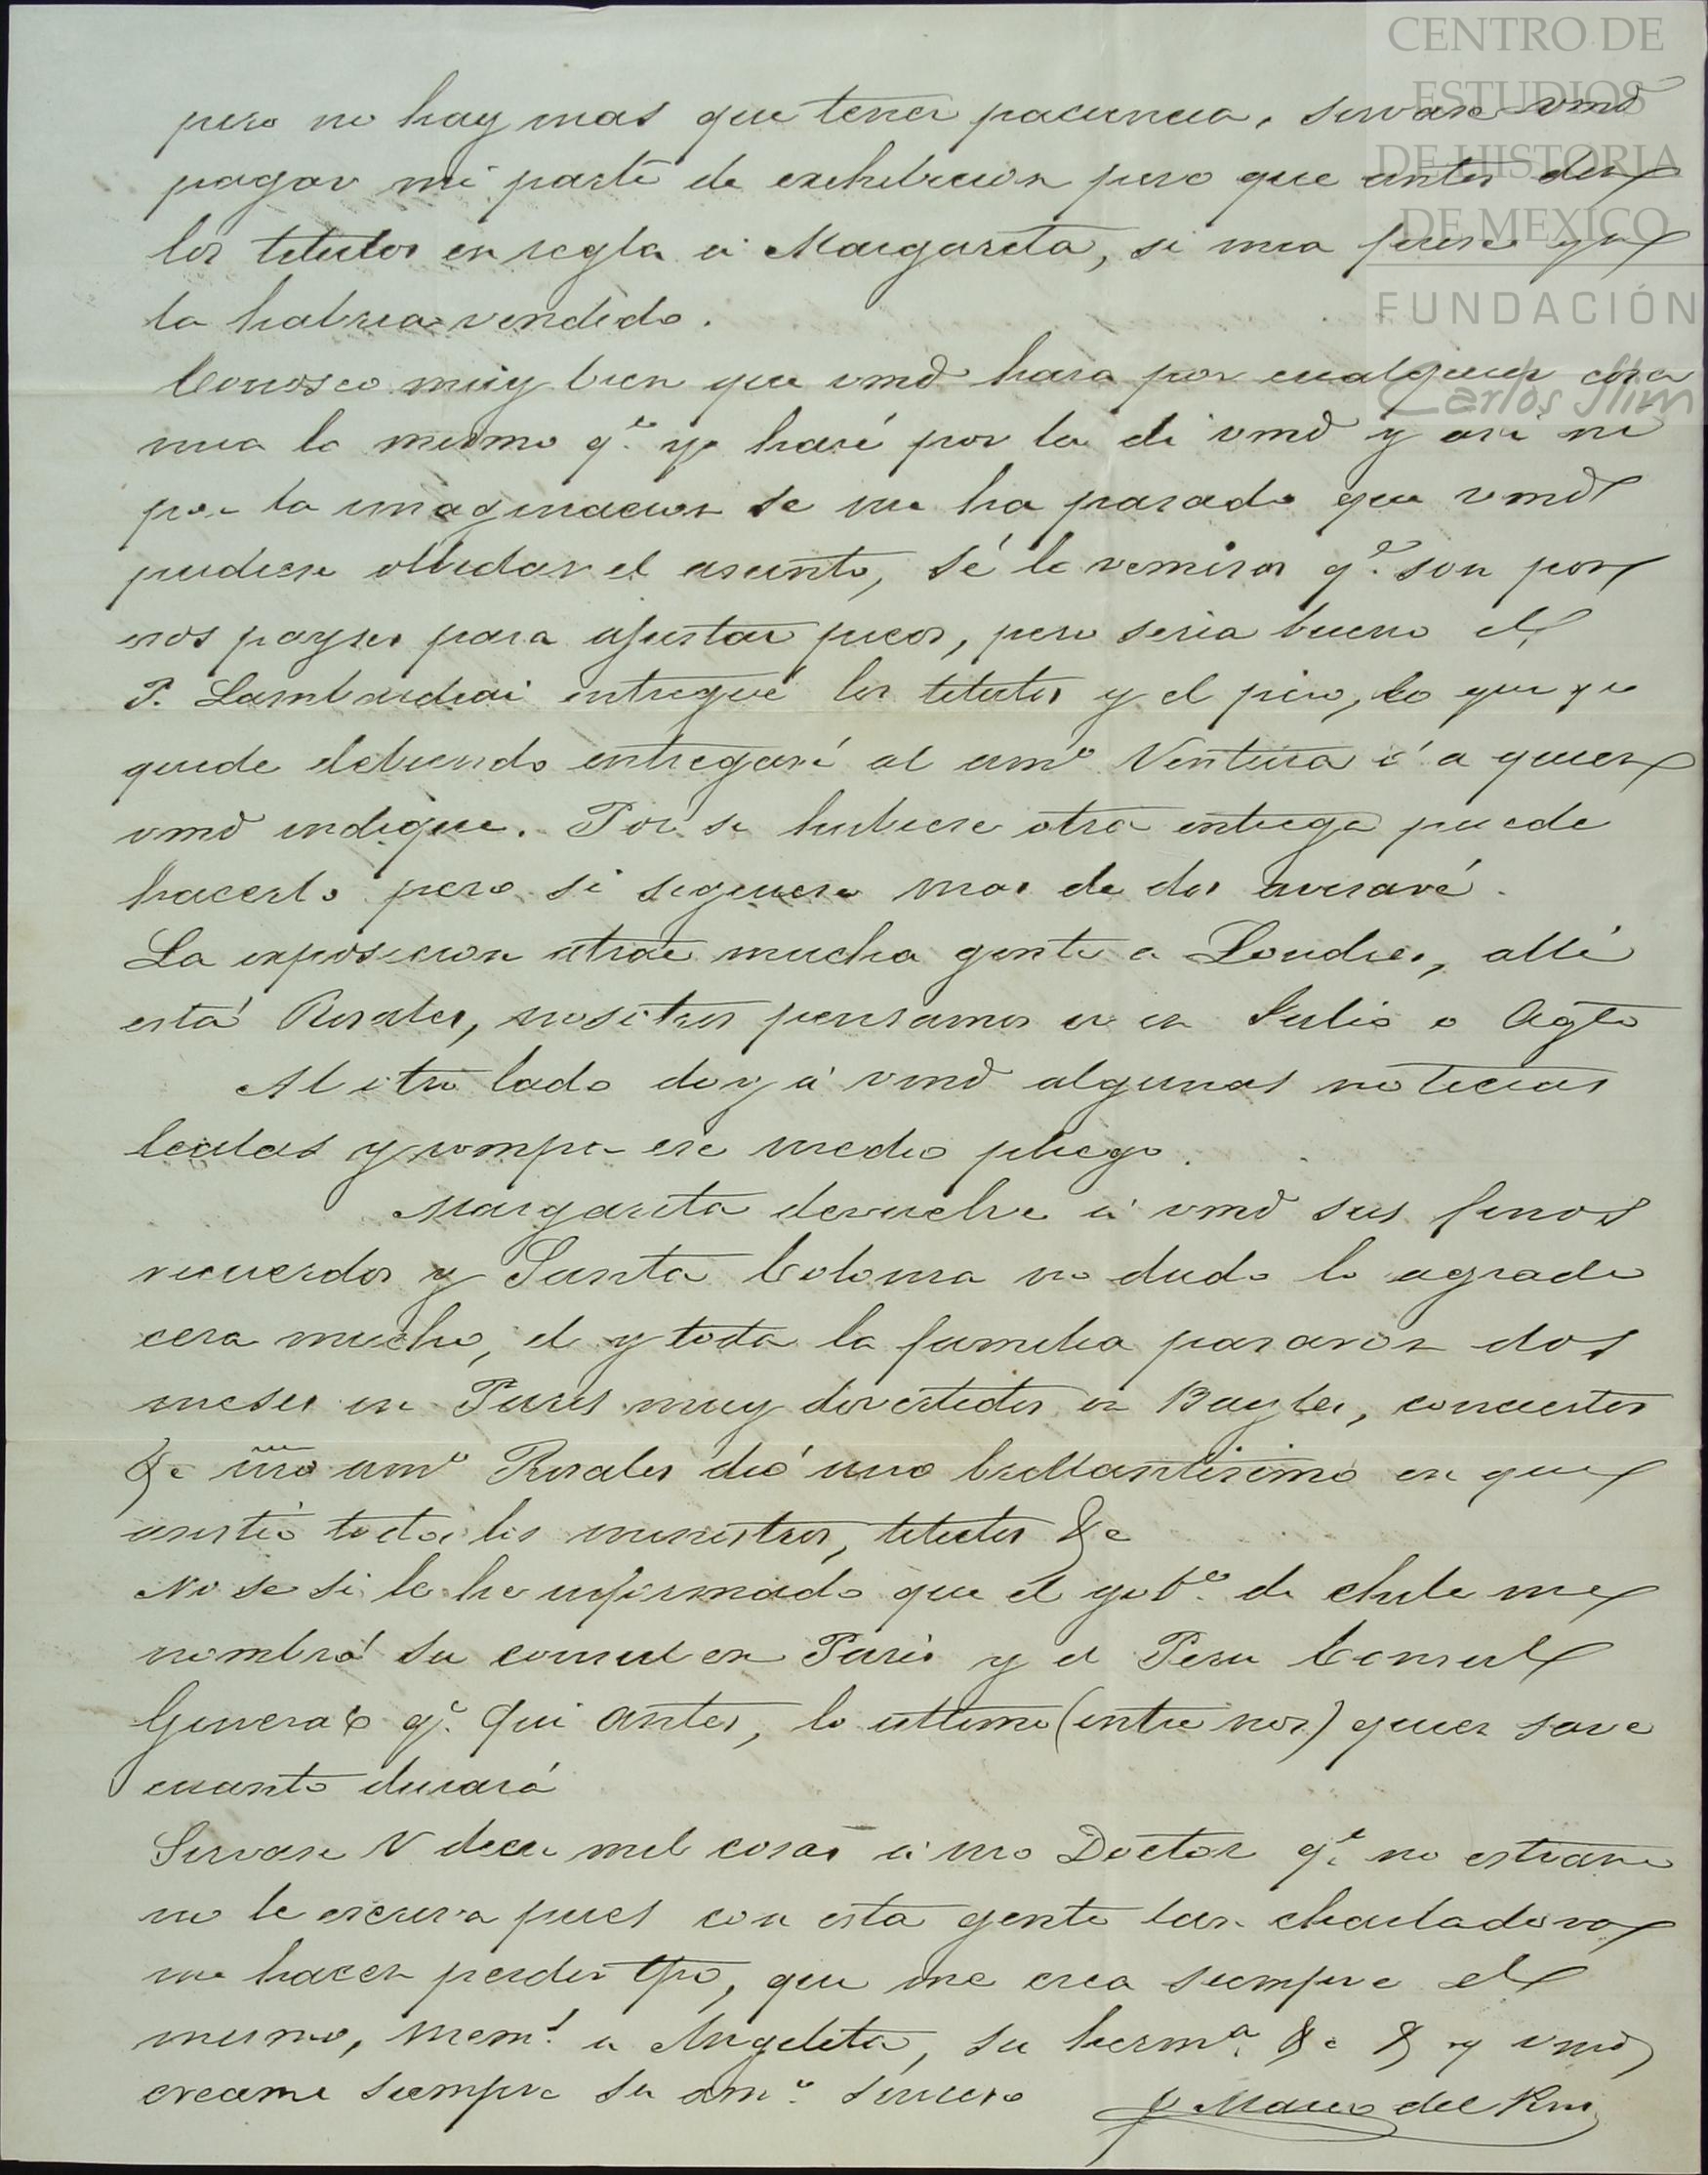 CENTRO DE
ESTUDIOS
DE HISTORIA
DE MEXICO
FUNDACIÓN
Carlos Slim
pero no hay mas que tener paciencia, sirvase vmd
pagar mi parte de exhibicion pero que antes den
los titulos en regla á Margarita, si mia fuera ya
la habria vendido.
Conosco muy bien que vmd hara por cualquier cosa
mia lo mismo qe. yo haré por la de vmd y asi ni
por la imaginacion se me ha pasado que vmd
pudiese olbidar el asunto, sé lo remisos qe. son por
esos payses para ajustar picos, pero seria bueno el
P. Lambardiai entregue los titulos y el pico, lo que yo
quede debiendo entregaré al amo. Ventura ó a quien
vmd indique. Por si hubiere otra entrega puede
hacerlo pero si siguiera mas de dos avisaré.
La exposicion atrae mucha gente a Londres, alli
está Rosales, nosotros pensamos ir en Julio o Agto
Al otro lado doy á vmd algunas noticias
lealas y rompa ese medio pliego.
Margarita devuelve á vmd sus finos
recuerdos y Santa Coloma no dudo lo agrade
cera mucho, el y toda la familia pasaron dos
meses en Paris muy divertidos en Bayles, conciertos
&a nro amo Rosales dió uno brillantisimo en que
asistió todos los ministros, titulos &a
No se si le he informado que el gobo. de Chile me
nombró su consul en Paris y el Peru Consul
General qe. fui antes, lo ultimo (entre nos) quien save
cuanto durará
Sirvase V decir mil cosas á nro Doctor qe. no estrañe
no le escriva pues con esta gente tan charladora
me hacen perder tpo, que me crea siempre el
mismo, mems. a Angelita, su herma. &a & y vmd
creame siempre su amo. sincero J Marco del Pont